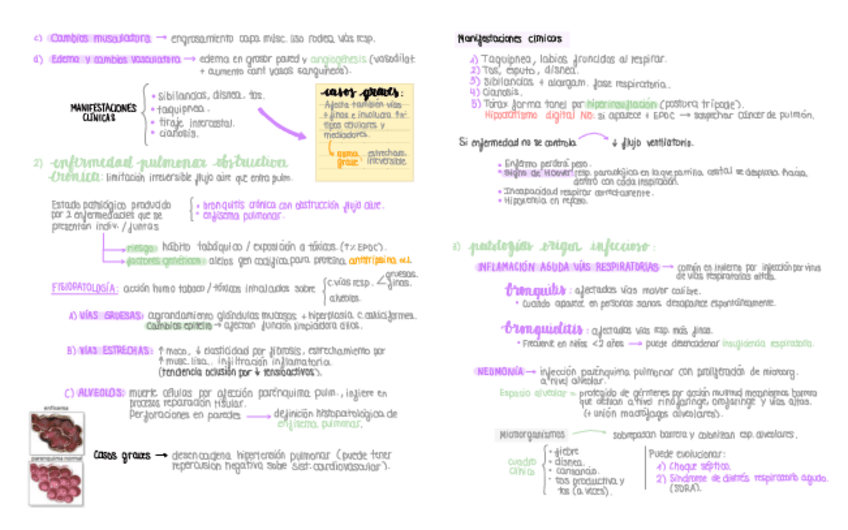 c) Cambios musculatura → engrosamiento capa músc. liso rodea vías resp.
d) Edema y cambios vasculatura → edema en grosor pared y angiogénesis (vasodilat.
+ aumento cant vasos sanguíneos).
MANIFESTACIONES
CLÍNICAS
• sibilancias, disnea, tos.
• taquipnea.
• tiraje intercostal.
• cianosis.
casos graves:
Afecta también vías
+ finas e involucra +
tipos celulares y
mediadores.
→ asma estrecham.
grave: irreversible.
2) enfermedad pulmonar obstructiva
crónica: limitación irreversible flujo aire que entra pulm.
Estado patológico producido
por 2 enfermedades que se
presentan indiv. / juntas
• bronquitis crónica con obstrucción flujo aire.
• enfisema pulmonar.
riesgo: hábito tabáquico / exposición a tóxicos. (↑% EPOC).
factores genéticos: alelos gen codifica para proteína antitripsina α1.
FISIOPATOLOGÍA: acción humo tabaco / tóxicos inhalados sobre
c. vías resp. < gruesas.
finas.
alveolos.
A) VÍAS GRUESAS: agrandamiento glándulas mucosas + hiperplasia c. caliciformes.
Cambios epitelio → afectan función limpiadora cilios.
B) VÍAS ESTRECHAS: ↑ moco, ↓ elasticidad por fibrosis, estrechamiento por
↑ musc. lisa, infiltración inflamatoria.
(tendencia oclusión por ↓ tensioactivos).
C) ALVEOLOS: muerte células por afección parénquima pulm., infiere en
procesos reparación tisular.
Perforaciones en paredes → definición histopatológica de
enfisema pulmonar.
enfisema
parénquima normal
Casos graves → desencadena hipertensión pulmonar (puede tener
repercusión negativa sobre sist. cardiovascular).
Manifestaciones clínicas
1) Taquipnea, labios fruncidos al respirar.
2) Tos, esputo, disnea.
3) Sibilancias + alargam. fase respiratoria.
4) Cianosis.
5) Tórax forma tonel por hiperinsuflación (postura trípode).
Hipocratismo digital NO: si aparece + EPOC → sospechar cáncer de pulmón.
Si enfermedad no se controla ↓ flujo ventilatorio.
• Enfermo perderá peso.
• Signo de Hoover: resp. paradójica en la que parrilla costal se desplaza hacia
dentro con cada inspiración.
• Incapacidad respirar correctamente.
• Hipoxemia en reposo.
3) patologías origen infeccioso:
INFLAMACIÓN AGUDA VÍAS RESPIRATORIAS → común en invierno por infección por virus
de vías respiratorias altas.
bronquitis: afectadas vías mayor calibre.
• Cuando aparece en personas sanas desaparece espontáneamente.
bronquiolitis: afectadas vías resp. más finas.
• Frecuente en niños <2 años → puede desencadenar insuficiencia respiratoria.
NEUMONÍA → infección parénquima pulmonar con proliferación de microorg.
a nivel alveolar.
Espacio alveolar = protegido de gérmenes por acción multitud mecanismos barrera
que actúan a nivel rinofaringe, orofaringe y vías altas.
(+ unión macrófagos alveolares).
Microorganismos → sobrepasan barrera y colonizan esp. alveolares.
CUADRO
CLÍNICO
• fiebre
• disnea.
• cansancio.
• tos productiva y
tos (a veces).
Puede evolucionar:
1) Choque séptico.
2) Síndrome de distrés respiratorio agudo.
(SDRA).